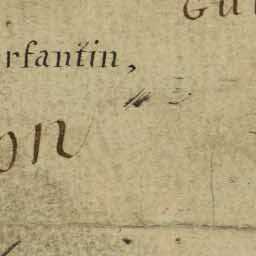 Gu
rfantin,
on